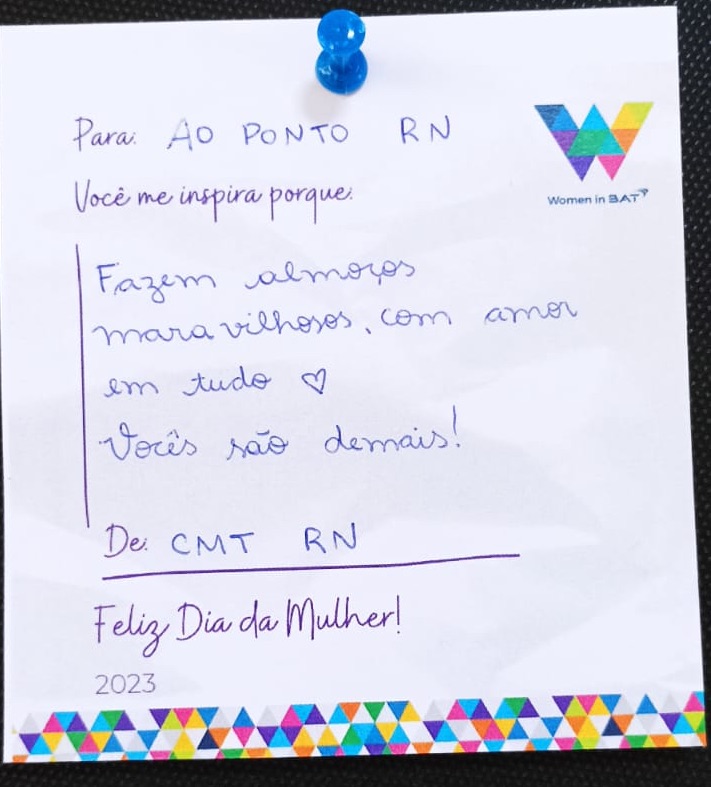 Para: AO PONTO RN
Women in BAT
Você me inspira porque:
Fazem almoços
maravilhosos, com amor
em tudo ♡
Vocês são demais!
De: CMT RN
Feliz Dia da Mulher!
2023